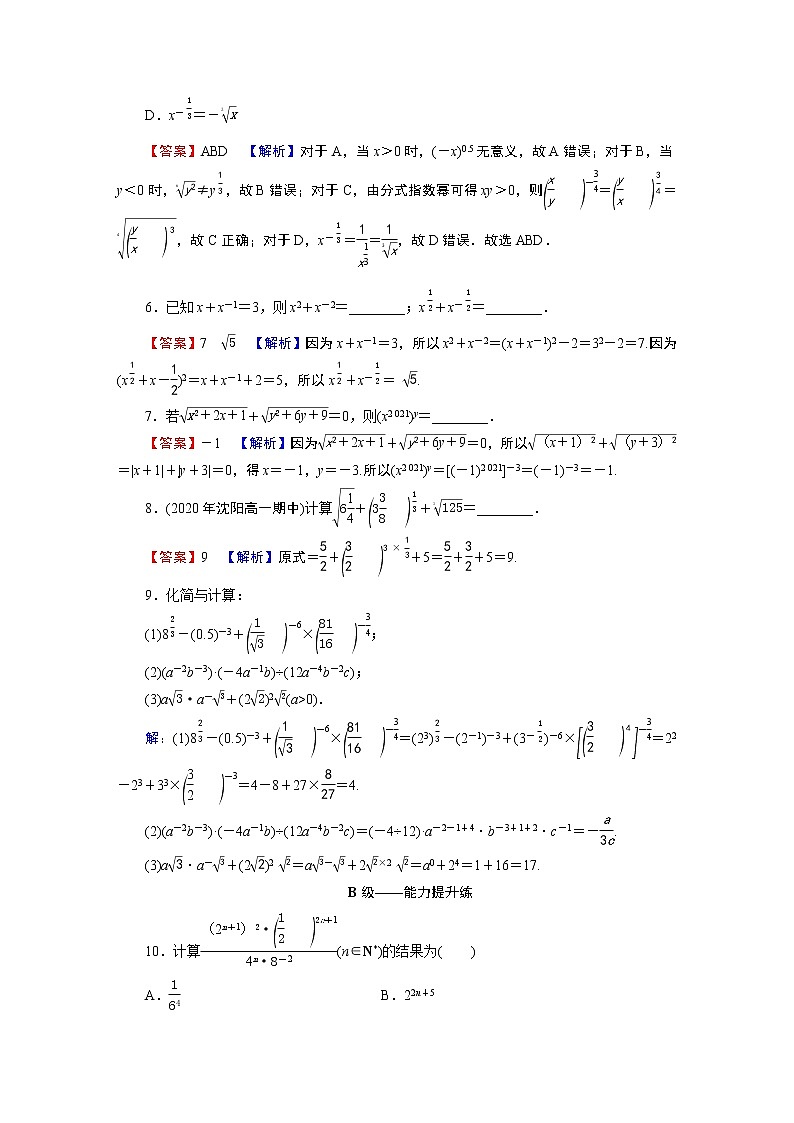 D．x^{-\frac{1}{3}}＝－\sqrt[3]{x}
【答案】ABD　【解析】对于 A，当 x＞0 时，(－x)^{0.5} 无意义，故 A 错误；对于 B，当
y＜0 时，\sqrt[6]{y^2}≠y^{\frac{1}{3}}，故 B 错误；对于 C，由分式指数幂可得 xy＞0，则\left(\frac{x}{y}\right)^{-\frac{3}{4}}＝\left(\frac{y}{x}\right)^{\frac{3}{4}}＝
\sqrt[4]{\left(\frac{y}{x}\right)^3}，故 C 正确；对于 D，x^{-\frac{1}{3}}＝\frac{1}{x^{\frac{1}{3}}}＝\frac{1}{\sqrt[3]{x}}，故 D 错误．故选 ABD．
6．已知 x＋x^{-1}＝3，则 x^2＋x^{-2}＝________；x^{\frac{1}{2}}＋x^{-\frac{1}{2}}＝________．
【答案】7　\sqrt{5}　【解析】因为 x＋x^{-1}＝3，所以 x^2＋x^{-2}＝(x＋x^{-1})^2－2＝3^2－2＝7.因为
(x^{\frac{1}{2}}＋x－\frac{1}{2})^2＝x＋x^{-1}＋2＝5，所以 x^{\frac{1}{2}}＋x^{-\frac{1}{2}}＝ \sqrt{5}.
7．若\sqrt{x^2＋2x＋1}＋\sqrt{y^2＋6y＋9}＝0，则(x^{2 021})^y＝________．
【答案】－1　【解析】因为\sqrt{x^2＋2x＋1}＋\sqrt{y^2＋6y＋9}＝0，所以\sqrt{（x＋1）^2}＋\sqrt{（y＋3）^2}
＝|x＋1|＋|y＋3|＝0，得 x＝－1，y＝－3.所以(x^{2 021})^y＝[(－1)^{2 021}]^{-3}＝(－1)^{-3}＝－1.
8．(2020 年沈阳高一期中)计算\sqrt{6\frac{1}{4}}＋\left(3\frac{3}{8}\right)^{\frac{1}{3}}＋\sqrt[3]{125}＝________．
【答案】9　【解析】原式＝\frac{5}{2}＋\left(\frac{3}{2}\right)^{3×\frac{1}{3}}＋5＝\frac{5}{2}＋\frac{3}{2}＋5＝9.
9．化简与计算：
(1)8^{\frac{2}{3}}－(0.5)^{-3}＋\left(\frac{1}{\sqrt{3}}\right)^{-6}×\left(\frac{81}{16}\right)^{-\frac{3}{4}}；
(2)(a^{-2}b^{-3})·(－4a^{-1}b)÷(12a^{-4}b^{-2}c)；
(3)a^{\sqrt{3}}·a^{-\sqrt{3}}＋(2^{\sqrt{2}})^{2\sqrt{2}}(a>0)．
解：(1)8^{\frac{2}{3}}－(0.5)^{-3}＋\left(\frac{1}{\sqrt{3}}\right)^{-6}×\left(\frac{81}{16}\right)^{-\frac{3}{4}}＝(2^3)^{\frac{2}{3}}－(2^{-1})^{-3}＋(3^{-\frac{1}{2}})^{-6}×\left[\left(\frac{3}{2}\right)^4\right]^{-\frac{3}{4}}＝2^2
－2^3＋3^3×\left(\frac{3}{2}\right)^{-3}＝4－8＋27×\frac{8}{27}＝4.
(2)(a^{-2}b^{-3})·(－4a^{-1}b)÷(12a^{-4}b^{-2}c)＝(－4÷12)·a^{-2-1+4}·b^{-3+1+2}·c^{-1}＝－\frac{a}{3c}.
(3)a^{\sqrt{3}}·a^{-\sqrt{3}}＋(2^{\sqrt{2}})^{2\sqrt{2}}＝a^{\sqrt{3}-\sqrt{3}}＋2^{\sqrt{2}×2\sqrt{2}}＝a^0＋2^4＝1＋16＝17.
B 级——能力提升练
10．计算\frac{（2^{n+1}）^2·\left(\frac{1}{2}\right)^{2n+1}}{4^n·8^{-2}}(n∈N^*)的结果为(　　)
A．\frac{1}{6^4}　　B．2^{2n+5}